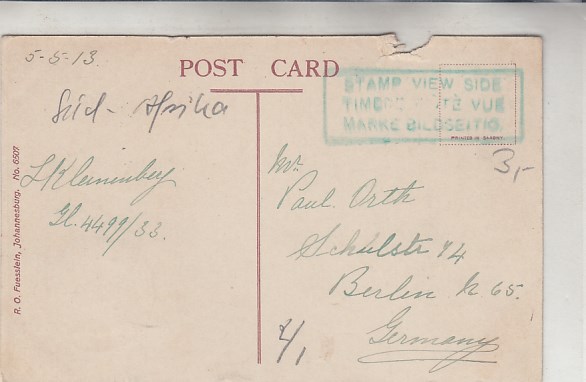 5-5-13.
POST CARD
STAMP VIEW SIDE
TIMBRE CÔTÉ VUE
MARKE BILDSEITIG.
PRINTED IN SAXONY
Süd-Afrika
3,-
L Kleinenberg
Gl. 4499/33.
Mr.
Paul. Orth
Schulstr 14
Berlin N 65.
Germany
R. O. Fuesslein, Johannesburg. No. 6507